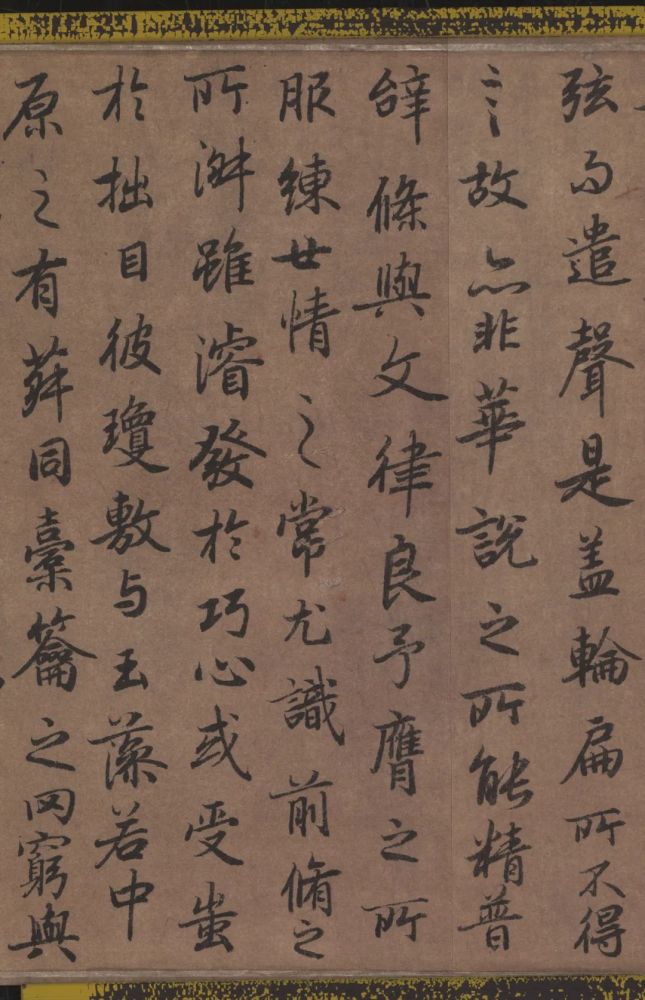 弦而遣聲是盖輪扁所不得
言故亦非華說之所能精普
辝條與文律良予膺之所
服練世情之常尤識前脩之
所淋雖濬發於巧心或受蚩
於拙目彼瓊敷与玉藻若中
原之有菽同橐籥之罔窮與